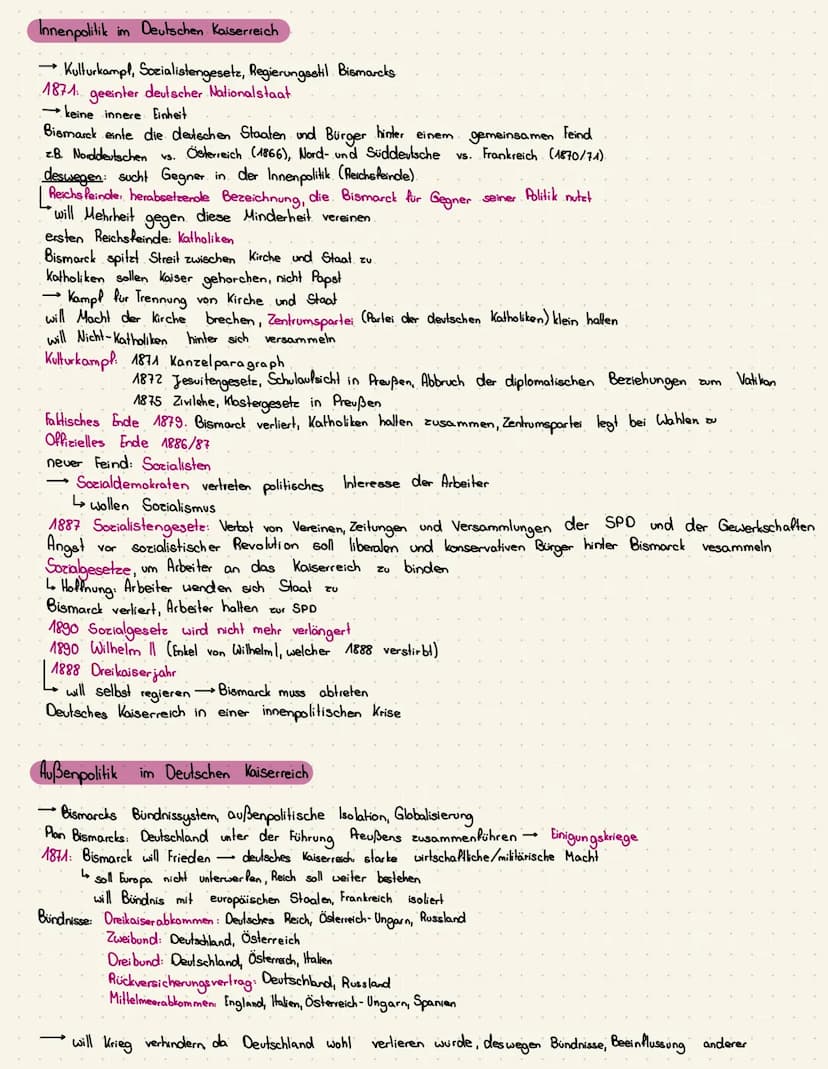 Innenpolitik im Deutschen Kaiserreich
→ Kulturkampf, Sozialistengesetz, Regierungsstil Bismarcks
1871: geeinter deutscher Nationalstaat
→ keine innere Einheit
Bismarck einte die deutschen Staaten und Bürger hinter einem gemeinsamen Feind
z.B. Norddeutschen vs. Österreich (1866), Nord- und Süddeutsche vs. Frankreich (1870/71)
deswegen: sucht Gegner in der Innenpolitik (Reichsfeinde)
Reichsfeinde: herabsetzende Bezeichnung, die Bismarck für Gegner seiner Politik nutzt
↳ will Mehrheit gegen diese Minderheit vereinen
ersten Reichsfeinde: Katholiken
Bismarck spitzt Streit zwischen Kirche und Staat zu
Katholiken sollen Kaiser gehorchen, nicht Papst
→ Kampf für Trennung von Kirche und Staat
will Macht der Kirche brechen, Zentrumspartei (Partei der deutschen Katholiken) klein halten
will Nicht-Katholiken hinter sich versammeln
Kulturkampf: 1871 Kanzelparagraph
1872 Jesuitengesetz, Schulaufsicht in Preußen, Abbruch der diplomatischen Beziehungen zum Vatikan
1875 Zivilehe, Klostergesetz in Preußen
Faktisches Ende 1879: Bismarck verliert, Katholiken halten zusammen, Zentrumspartei legt bei Wahlen zu
Offizielles Ende 1886/87
neuer Feind: Sozialisten
→ Sozialdemokraten vertreten politisches Interesse der Arbeiter
↳ wollen Sozialismus
1887 Sozialistengesetz: Verbot von Vereinen, Zeitungen und Versammlungen der SPD und der Gewerkschaften
Angst vor sozialistischer Revolution soll liberalen und konservativen Bürger hinter Bismarck vesammeln
Sozialgesetze, um Arbeiter an das Kaiserreich zu binden
↳ Hoffnung: Arbeiter wenden sich Staat zu
Bismarck verliert, Arbeiter halten zur SPD
1890 Sozialgesetz wird nicht mehr verlängert
1890 Wilhelm II (Enkel von Wilhelm I, welcher 1888 verstirbt)
1888 Dreikaiserjahr
↳ will selbst regieren → Bismarck muss abtreten
Deutsches Kaiserreich in einer innenpolitischen Krise
Außenpolitik im Deutschen Kaiserreich
→ Bismarcks Bündnissystem, außenpolitische Isolation, Globalisierung
Plan Bismarcks: Deutschland unter der Führung Preußens zusammenführen → Einigungskriege
1871: Bismarck will Frieden → deutsches Kaiserreich starke wirtschaftliche/militärische Macht
↳ soll Europa nicht unterwerfen, Reich soll weiter bestehen
will Bündnis mit europäischen Staaten, Frankreich isoliert
Bündnisse: Dreikaiserabkommen: Deutsches Reich, Österreich-Ungarn, Russland
Zweibund: Deutschland, Österreich
Dreibund: Deutschland, Österreich, Italien
Rückversicherungsvertrag: Deutschland, Russland
Mittelmeerabkommen: England, Italien, Österreich-Ungarn, Spanien
→ will Krieg verhindern, da Deutschland wohl verlieren würde, deswegen Bündnisse, Beeinflussung anderer